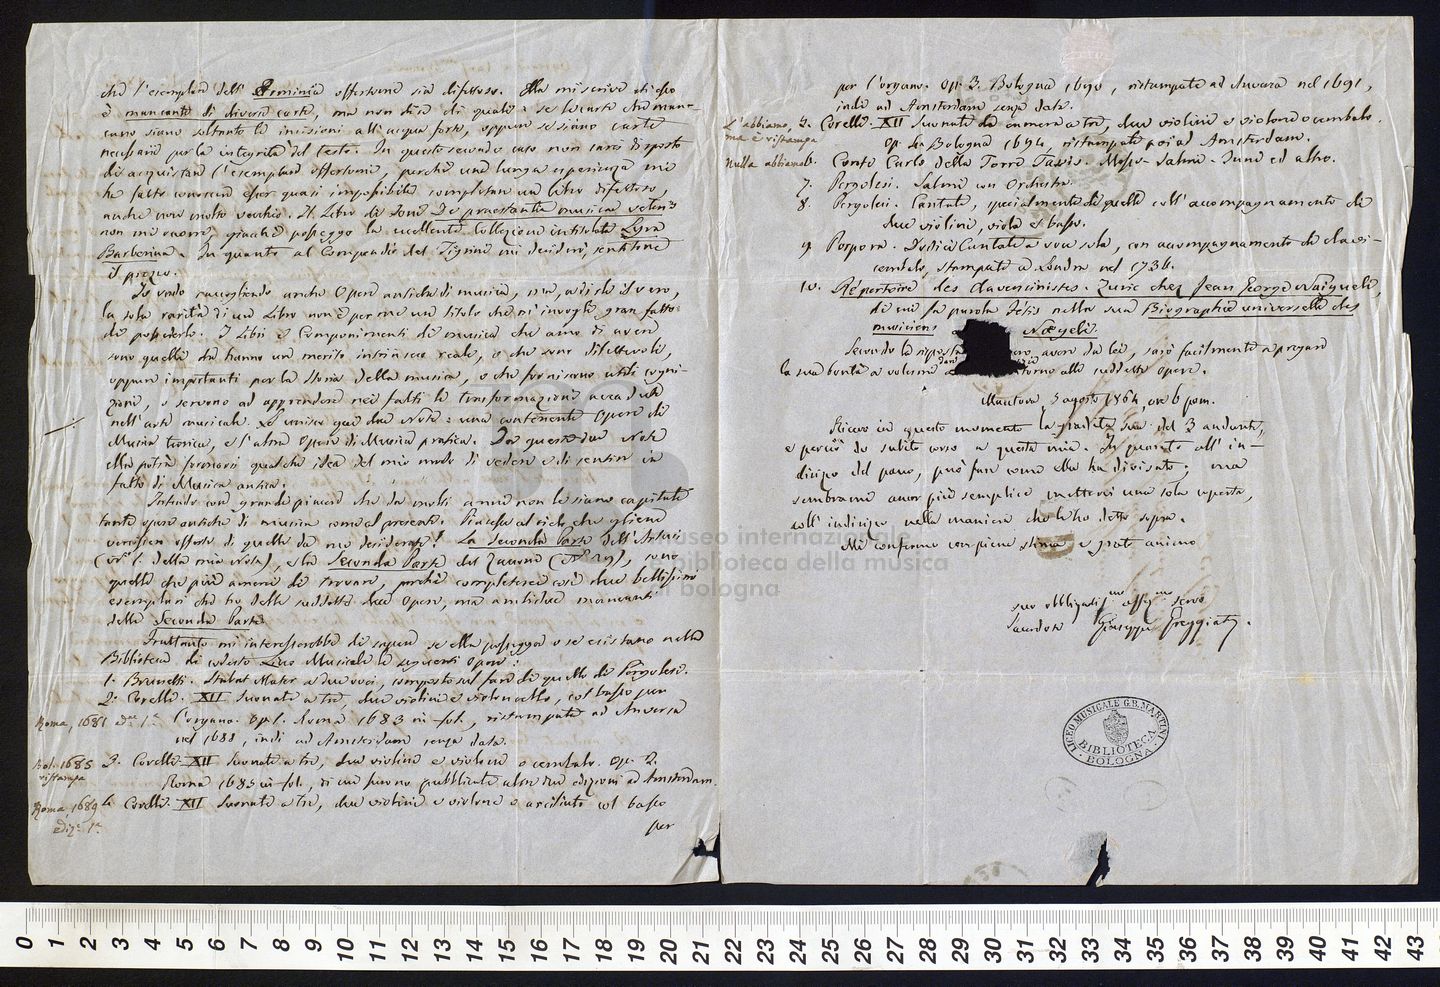 che l'esemplare dell' Arminia offertomi sia difettoso. Ella mi scrive che esso
è mancante di diverse carte, ma non dice di quali: se le carte che man-
cano siano soltanto le incisioni all'acqua forte, oppure se siano carte
necessarie per la integrità del testo. In questo secondo caso non sarei disposto
di acquistare l'esemplare offertomi, perché una lunga esperienza mi
ha fatto conoscere esser quasi impossibile completare un libro difettoso,
anche non molto vecchio. Il Libro di Doni De praestantia musicae veteris
non mi occorre, giacché posseggo la eccellente Collezione intitolata Lyra
Barberina. In quanto al Compendio del Tigrini mi desideri, sentitone
il prezzo.
Io vado raccogliendo anche Opere antiche di musica, ma, a dirle il vero,
la sola rarità di un Libro non è per me un titolo che m'invogli gran fatto
di possederlo. I Libri e Componimenti di musica che amo di avere
sono quelli che hanno un merito intrinseco reale, o che sono dilettevoli,
oppure importanti per la storia della musica, o che forniscono utili cogni-
zioni, o servono ad apprendere nei fatti le trasformazioni accadute
nell'arte musicale. Le unisco qui due Note: una contenente Opere di
Musica teorica, e l'altra Opere di Musica pratica. Da queste due Note
Ella potrà formarsi qualche idea del mio modo di vedere e di sentire in
fatto di Musica antica.
Intendo con grande piacere che da molti anni non le siano capitate
tante opere antiche di musica come al presente. Piacesse al cielo che gliene
venissero offerte di quelle da me desiderate! La Seconda Parte dell'Artusi
(N.° 1. della mia Nota), e la Seconda Parte del Zacconi (N.° 29), sono
quelle che più amerei di trovare, perché completerei così due bellissimi
esemplari che ho delle suddette due Opere, ma ambidue mancanti
della Seconda Parte.
Frattanto mi interesserebbe di sapere se ella possegga o se esistano nella
Biblioteca di codesto Liceo Musicale le seguenti Opere:
1. Brunetti. Stabat Mater a due voci, composto sul fare di quello di Pergolesi.
2. Corelli. XII Suonate a tre, due violini e violoncello, col basso per
Roma, 1681 ediz.e 1.a l'organo. Op. 1. Roma 1683 in fol., ristampate ad Anversa
nel 1688, indi ad Amsterdam senza data.
Bol. 1685
ristampa
3. Corelli. XII Suonate a tre, due violini e violone o cembalo. Op. 2.
Roma 1685 in fol., di cui furono pubblicate altre due edizioni ad Amsterdam.
Roma, 1689
ediz.e 1.a
4. Corelli. XII Suonate a tre, due violini e violone o arciliuto col basso
per
per l'organo. Op. 3. Bologna 1690, ristampate ad Anversa nel 1691,
indi ad Amsterdam senza data.
L'abbiamo,
ma è ristampa
5. Corelli. XII Suonate da camera a tre, due violini e violone o cembalo.
Op. 4. Bologna 1694, ristampate poi ad Amsterdam.
Nulla abbiamo
6. Conte Carlo della Torre Taxis. Messe. Salmi. Inni ed altro.
7. Pergolesi. Salmi con Orchestra.
8. Pergolesi. Cantate, specialmente di quelle coll'accompagnamento di
due violini, viola e basso.
9. Porpora. Dodici Cantate a voce sola, con accompagnamento di clavi-
cembalo, stampate a Londra nel 1735.
10. Répertoire des clavecinistes. Zuric chez Jean George Naigueli,
di cui fa parola Fétis nella sua Biographie universelle des
musiciens Nägeli.
Secondo la risposta avere da lei, sarò facilmente a pregare
la sua bontà a volermi dare intorno alle suddette opere.
Mantova, 5 agosto 1864, ore 6 pom.
Ricevo in questo momento la gradita sua del 3 andante,
e perciò do subito corso a questa mia. In quanto all'in-
dirizzo del pacco, può fare come ella ha divisato; ma
sembrami ancor più semplice mettervi una sola coperta,
coll'indirizzo nella maniera che le ho detto sopra.
Mi confermo con piena stima e grato animo
suo obbligatis.mo aff.mo servo
Sacerdote Giuseppe Greggiati.
LICEO MUSICALE G.B. MARTINI
BIBLIOTECA
BOLOGNA
museo internazionale
e biblioteca della musica
di bologna
0 1 2 3 4 5 6 7 8 9 10 11 12 13 14 15 16 17 18 19 20 21 22 23 24 25 26 27 28 29 30 31 32 33 34 35 36 37 38 39 40 41 42 43